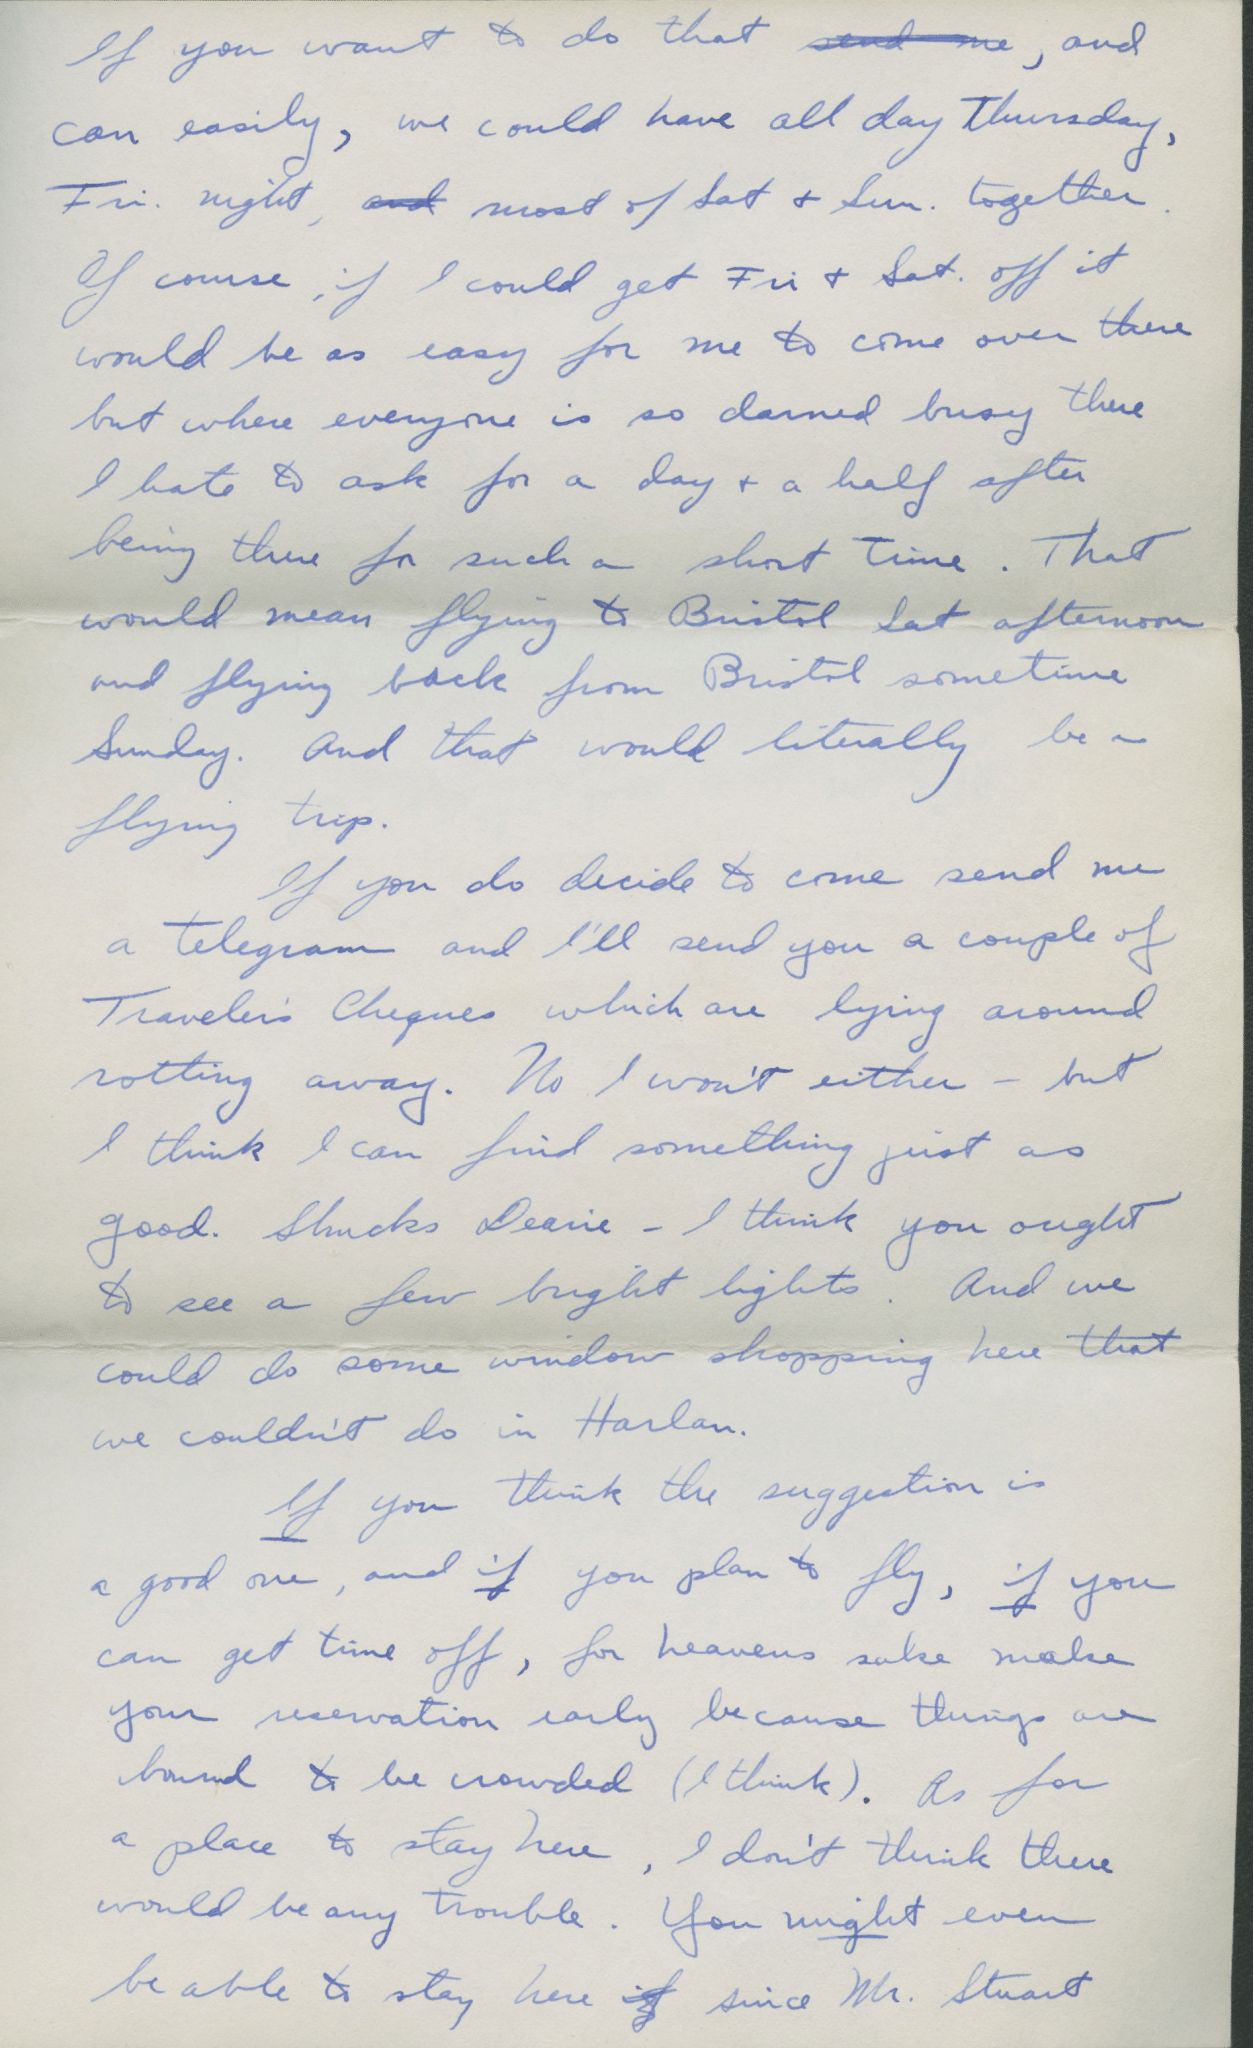 If you want to do that ~~send me~~, and
can easily, we could have all day Thursday,
Fri. night, ~~and~~ most of Sat & Sun. together.
Of course, if I could get Fri & Sat. off it
would be as easy for me to come over there
but where everyone is so darned busy there
I hate to ask for a day & a half after
being there for such a short time. That
would mean flying to Bristol Sat afternoon
and flying back from Bristol sometime
Sunday. And that would literally be a
flying trip.
If you do decide to come send me
a telegram and I'll send you a couple of
Traveler's Cheques which are lying around
rotting away. No I won't either - but
I think I can find something just as
good. Shucks Dearie - I think you ought
to see a few bright lights. And we
could do some window shopping here that
we couldn't do in Harlan.
If you think the suggestion is
a good one, and if you plan to fly, if you
can get time off, for heavens sake make
your reservation early because things are
bound to be crowded (I think). As for
a place to stay here, I don't think there
would be any trouble. You might even
be able to stay here ~~if~~ since Mr. Stuart